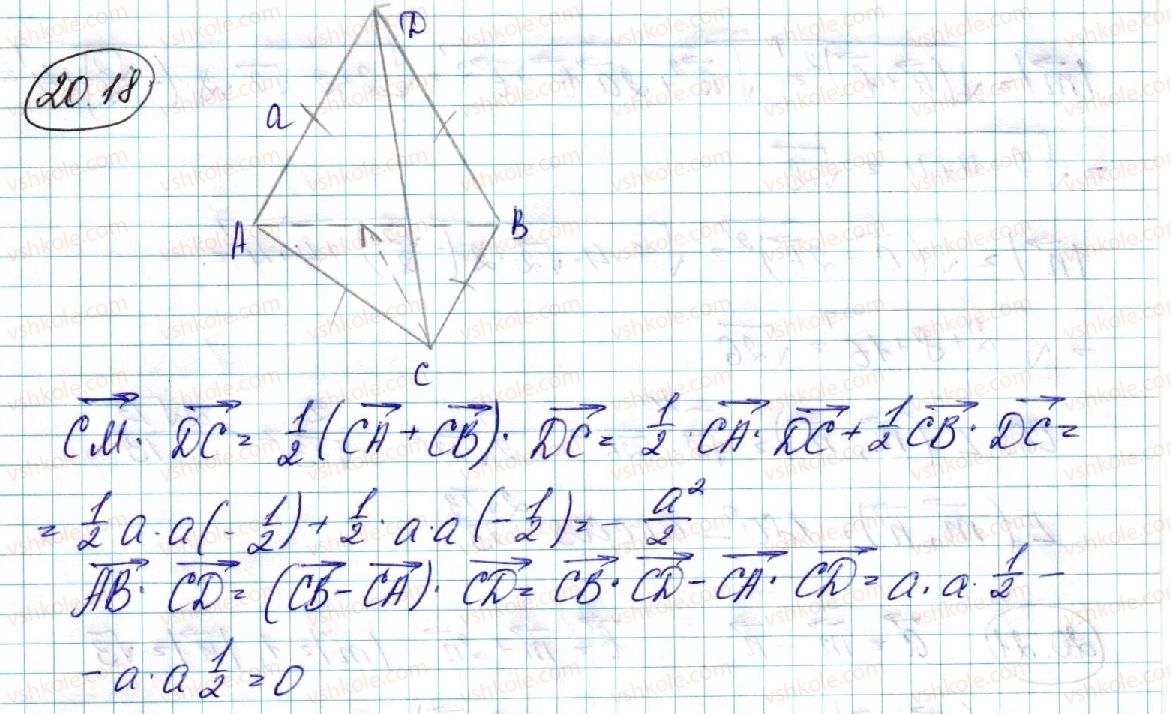 20.18
D
a
A
B
C
CM⃗ · DC⃗ = 1/2 (CA⃗ + CB⃗) · DC⃗ = 1/2 · CA⃗ · DC⃗ + 1/2 CB⃗ · DC⃗ =
= 1/2 a · a (- 1/2) + 1/2 · a · a (- 1/2) = - a²/2
AB⃗ · CD⃗ = (CB⃗ - CA⃗) · CD⃗ = CB⃗ · CD⃗ - CA⃗ · CD⃗ = a · a · 1/2 -
- a · a 1/2 = 0
vshkole.com